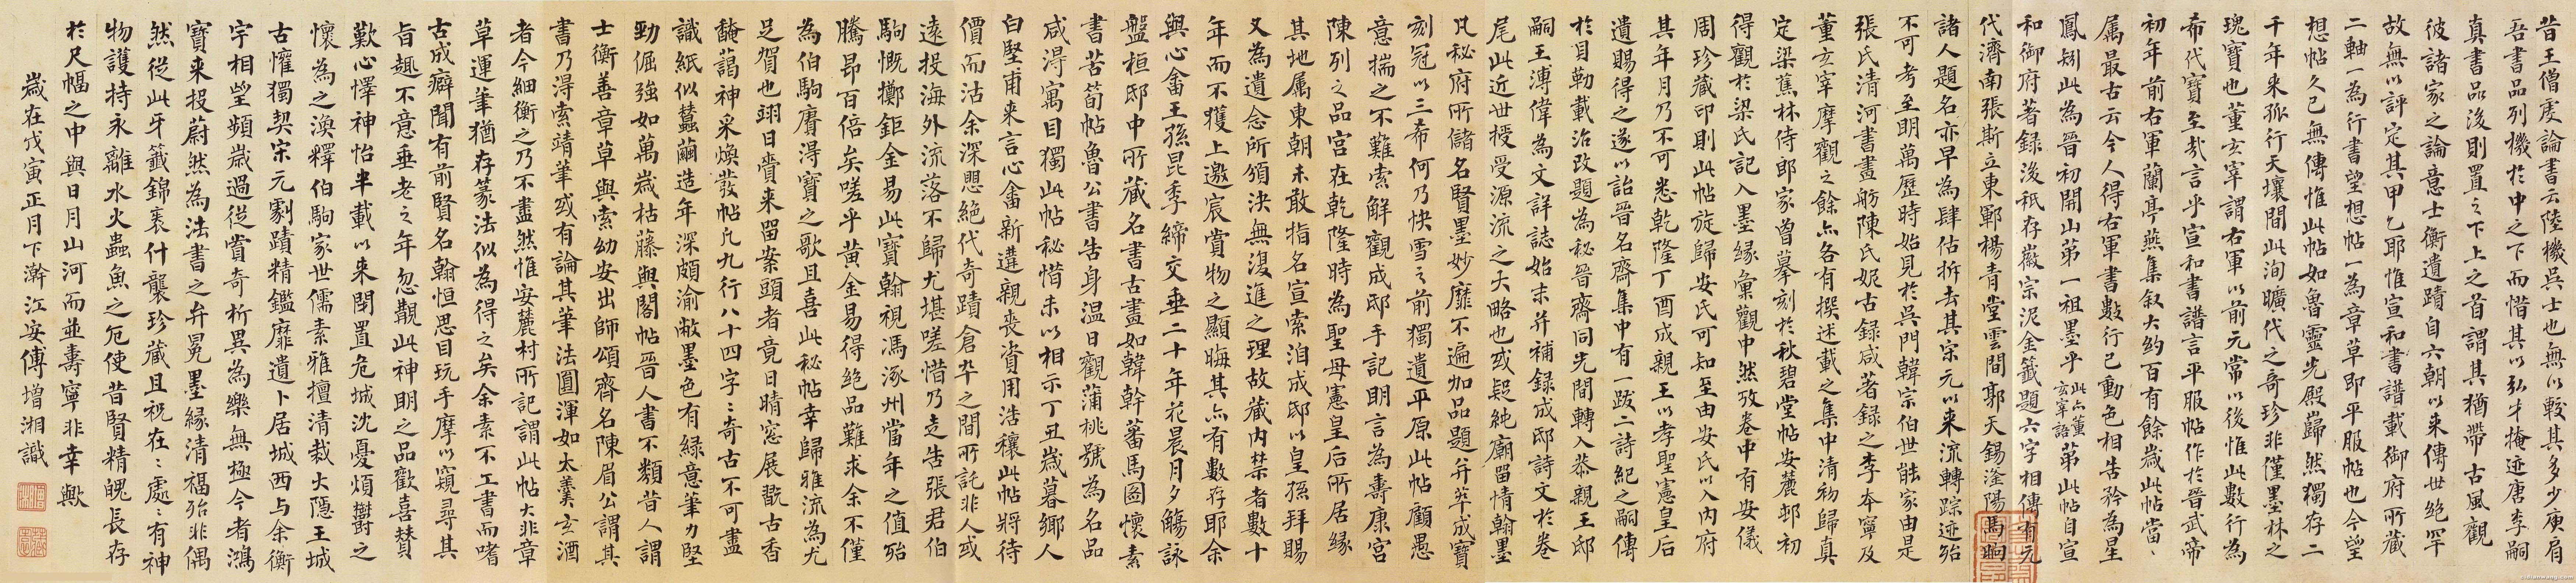 昔王僧虔論書云陸機吳士也無以較其多少庾肩
吾書品列機於中之下而惜其以弘才掩迹唐李嗣
真書品後則置之下上之首謂其猶帶古風觀
彼諸家之論意士衡遺蹟自六朝以來傳世絕罕
故無以評定其甲乙耶惟宣和書譜載御府所藏
二軸一為行書望想帖一為章草即平服帖也今望
想帖久已無傳惟此帖如魯靈光殿巋然獨存二
千年來孤行天壤間此洵曠代之奇珍非僅墨林之
瑰寶也董玄宰謂右軍以前元常以後惟此數行為
希代寶至哉言乎宣和書譜言平服帖作於晉武帝
初年前右軍蘭亭燕集叙大約百有餘歲此帖當
屬最古云今人得右軍書數行已動色相告矜為星
鳳矧此為晉初開山第一祖墨乎此亦董玄宰語第此帖自宣
和御府著錄後秖存徽宗泥金籤題六字相傳有元
代濟南張斯立東鄆楊青堂雲間郭天錫滏陽馬昫
諸人題名亦早為肆估拆去其宋元以來流轉踪迹殆
不可考至明萬歷時始見於吳門韓宗伯世能家由是
張氏清河書畫舫陳氏妮古錄咸著錄之李本寧及
董玄宰摩觀之餘亦各有撰述載之集中清初歸真
定梁蕉林侍郎家曾摹刻於秋碧堂帖安麓邨初
得觀於梁氏記入墨緣彙觀中然攷卷中有安儀
周珍藏印則此帖旋歸安氏可知至由安氏以入內府
其年月乃不可悉乾隆丁酉成親王以孝聖憲皇后
遺賜得之遂以詒晉名齋集中有一跋二詩紀之嗣傳
於貝勒載治改題為秘晉齋同光間轉入恭親王邸
嗣王溥偉為文詳誌始末并補錄成邸詩文於卷
尾此近世授受源流之大略也或疑純廟留情翰墨
凡秘府所儲名賢墨妙靡不遍加品題并萃成寶
刻冠以三希何乃快雪之前獨遺平原此帖顧愚
意揣之不難索解觀成邸手記明言為壽康宮
陳列之品宮在乾隆時為聖母憲皇后所居緣
其地屬東朝未敢指名宣索洎成邸以皇孫拜賜
又為遺念所頒決無復進之理故藏內禁者數十
年而不獲上邀宸賞物之顯晦其亦有數存耶余
與心畬王孫昆季締交垂二十年花晨月夕觴詠
盤桓邸中所藏名書古畫如韓幹蕃馬圖懷素
書苦筍帖魯公書告身溫日觀蒲桃號為名品
咸得寓目獨此帖秘惜未以相示丁丑歲暮鄉人
白堅甫來言心畬新遘親喪資用浩穰此帖將待
價而沽余深懼絕代奇蹟倉卒之間所託非人或
遠投海外流落不歸尤堪嗟惜乃走告張君伯
駒慨擲鉅金易此寶翰視馮涿州當年之值殆
騰昂百倍矣嗟乎黃金易得絕品難求余不僅
為伯駒賡得寶之歌且喜此秘帖幸歸雅流為尤
足賀也翊日賫來留案頭者竟日晴窗展翫古香
馣藹神采煥發帖凡九行八十四字字奇古不可盡
識紙似蠶繭造年深頗渝敝墨色有綠意筆力堅
勁倔強如萬歲枯藤與閣帖晉人書不類昔人謂
士衡善章草與索幼安出師頌齊名陳眉公謂其
書乃得索靖筆或有論其筆法圓渾如太羹玄酒
者今細衡之乃不盡然惟安麓村所記謂此帖大非章
草運筆猶存篆法似為得之矣余素不工書而嗜
古成癖聞有前賢名翰恒思目玩手摩以窺尋其
旨趣不意垂老之年忽覯此神明之品歡喜贊
歎心懌神怡半載以來閉置危城沈憂煩鬱之
懷為之渙釋伯駒家世儒素雅擅清裁大隱王城
古懽獨契宋元劇蹟精鑑靡遺卜居城西与余衡
宇相望頻歲過從賞奇析異為樂無極今者鴻
寶來投蔚然為法書之弁冕墨緣清福殆非偶
然從此牙籤錦裹什襲珍藏且祝在在處處有神
物護持永離水火蟲魚之厄使昔賢精魄長存
於尺幅之中與日月山河而並壽寧非幸歟
歲在戊寅正月下澣江安傅增湘識